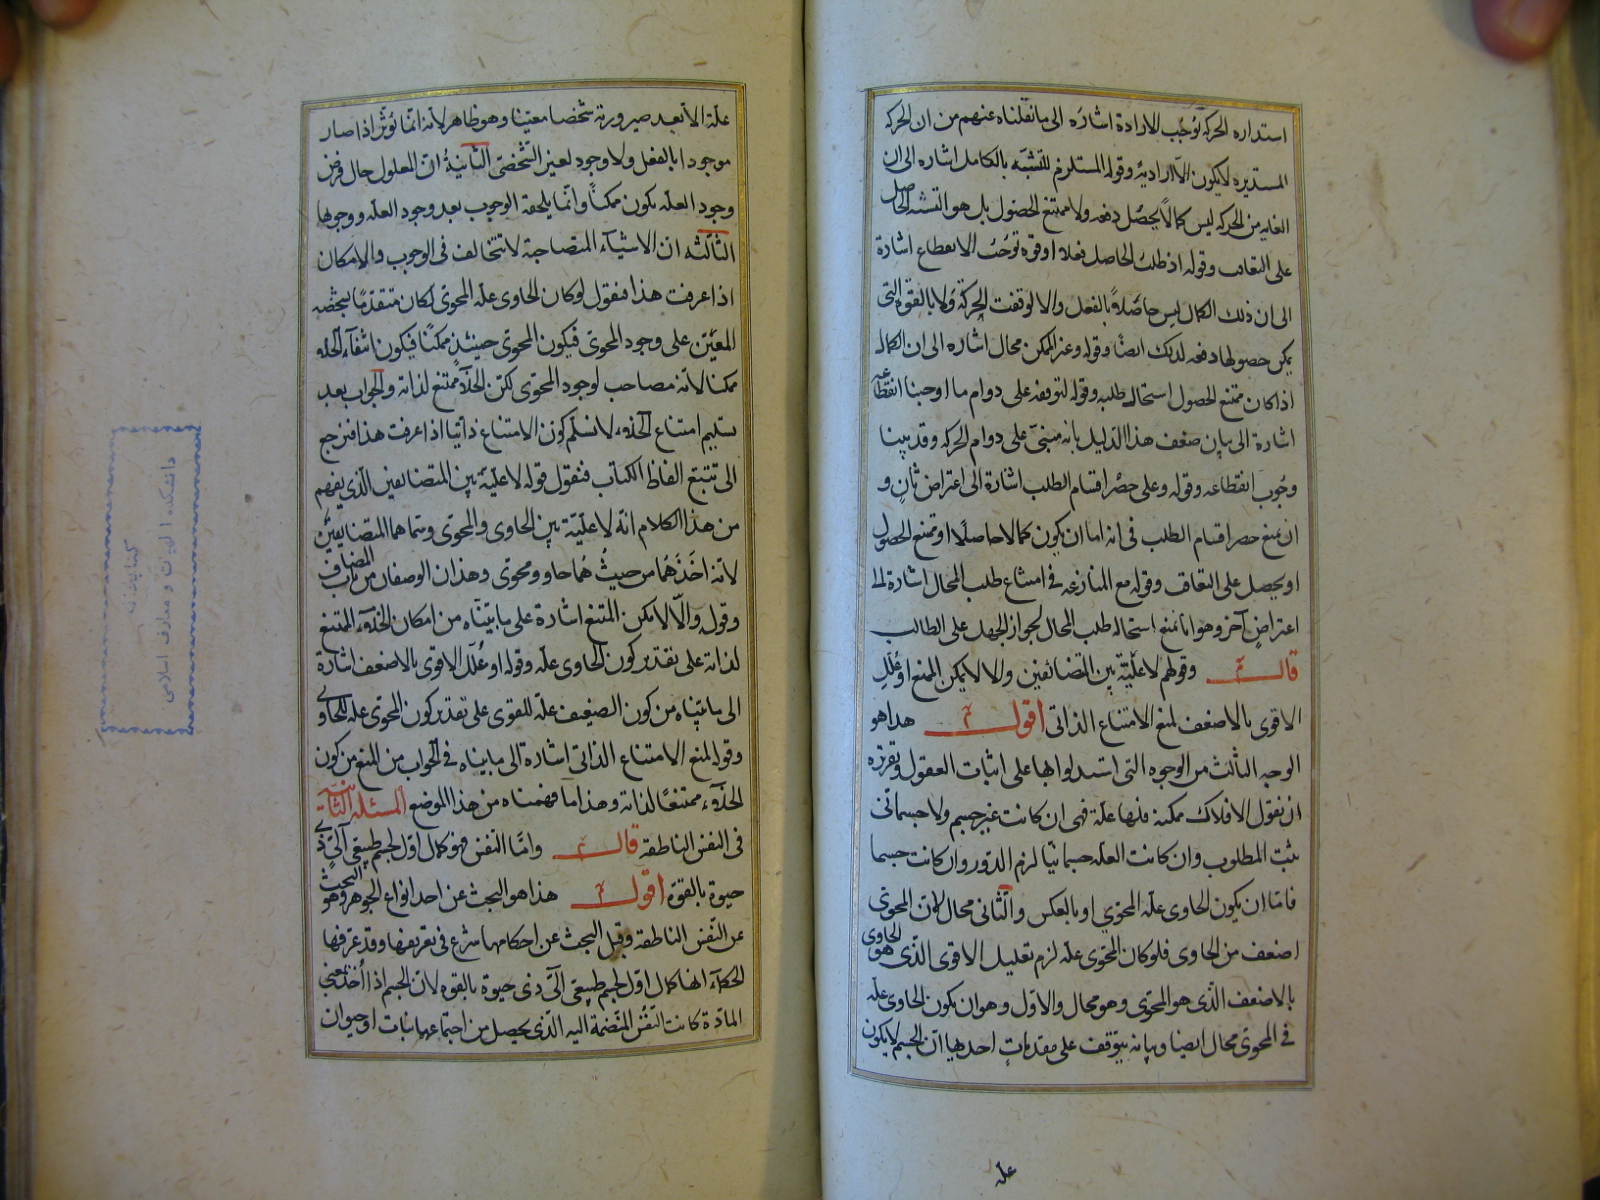 استداره الحركة توجب الارادة اشارة الى ما نقلناه عنهم من ان الحركة
المستديرة لا يكون الا ارادية وقوله المستلزم للتشبه بالكامل اشارة الى ان
الغاية من الحركة ليس كمالا يحصل دفعه ولا ممتنع الحصول بل هو التشبه الحاصل
على التعاقب وقوله اذ طلب الحاصل فعلا او قوة توجب الانقطاع اشارة
الى ان ذلك الكمال ليس حاصلا بالفعل والا لوقفت الحركة ولا بالقوة التى
يمكن حصولها دفعه لذلك ايضا وقوله وغير الممكن محال اشاره الى ان الكمال
اذا كان ممتنع الحصول استحال طلبه وقوله لتوقفه على دوام ما اوجبنا انقطاعه
اشارة الى بيان ضعف هذا الدليل بانه مبنى على دوام الحركه وقد بينا
وجوب انقطاعه وقوله وعلى حصر اقسام الطلب اشارة الى اعتراض ثان و
ان نمنع حصر اقسام الطلب فى انه اما ان يكون كمالا حاصلا او ممتنع الحصول
او يحصل على التعاقب وقوله مع المنازعه فى امتناع طلب المحال اشارة الى
اعتراض آخر وهو انا نمنع استحاله طلب المحال لجواز الجهل على الطالب
قال وقولهم لا علية بين المتضائفين والا لا يمكن الممتنع او علل
الاقوى بالاضعف لمنع الامتناع الذاتى اقول هذا هو
الوجه الثالث من الوجوه التى استدلوا بها على اثبات العقول وتقريره
ان نقول الافلاك ممكنة فلها علة فهى ان كانت غير جسم ولا جسمانى
ثبت المطلوب وان كانت العله جسمانيا لزم الدور وان كانت جسما
فاما ان يكون الحاوى علة المحوى او بالعكس والثانى محال لان المحوى
اضعف من الحاوى فلو كان المحوى علة لزم تعليل الاقوى الذى هو الحاوى
بالاضعف الذى هو المحوى وهو محال والاول وهو ان يكون الحاوى علة
فى المحوى محال ايضا وبيانه يتوقف على مقدمات احديها ان الجسم لا يكون
علة
علة الا بعد صيرورته شخصا معينا وهو ظاهر لانه انما يؤثر اذا صار
موجودا بالفعل ولا وجود لغير الشخصى الثانية ان المعلول حال فرض
وجود العلة يكون ممكنا وانما يلحقه الوجوب بعد وجود العله ووجوبها
الثالثه ان الاشياء المتصاحبة لا تتخالف فى الوجوب والامكان
اذا عرفت هذا فنقول لو كان الحاوى علة المحوى لكان متقدما بشخصه
المعين على وجود المحوى فيكون المحوى حينئذ ممكنا فيكون انتفاء الخلاء
ممكنا لانه مصاحب لوجود المحوى لكن الخلاء ممتنع لذاته والجواب بعد
تسليم امتناع الخلاء لا نسلم كون الامتناع ذاتيا اذا عرفت هذا فنرجع
الى تتبع الفاظ الكتاب فنقول قوله لا علية بين المتضائفين الذى يفهم
من هذا الكلام انه لا علية بين الحاوى والمحوى وسماهما المتضايفين
لانه اخذهما من حيث هما حاو ومحوى وهذان الوصفان من باب المضاف
وقوله والا لا مكن الممتنع اشارة على ما بيناه من امكان الخلاء الممتنع
لذاته على تقدير كون الحاوى علة وقوله او علل الاقوى بالاضعف اشارة
الى ما بيناه من كون الضعيف علة للقوى على تقدير كون المحوى علة للحاوى
وقوله لمنع الامتناع الذاتى اشارة الى ما بيناه فى الجواب من المنع من كون
الخلاء ممتنعا لذاته وهذا ما فهمناه من هذا الموضع المسئلة الثانية
فى النفس الناطقة قال واما النفس فهو كمال اول لجسم طبيعى آلى ذى
حيوة بالقوة اقول هذا هو البحث عن احد انواع الجوهر وهو البحث
عن النفس الناطقة وقبل البحث عن احكامها شرع فى تعريفها وقد عرفها
الحكماء انها كمال اول لجسم طبيعى آلى ذى حيوة بالقوه لان الجسم اذا اخذ بمعنى
المادة كانت النفس المنضمة اليه الذى يحصل من اجتماعهما نبات او حيوان
دانشكده الهيات و معارف اسلامى
كتابخانه